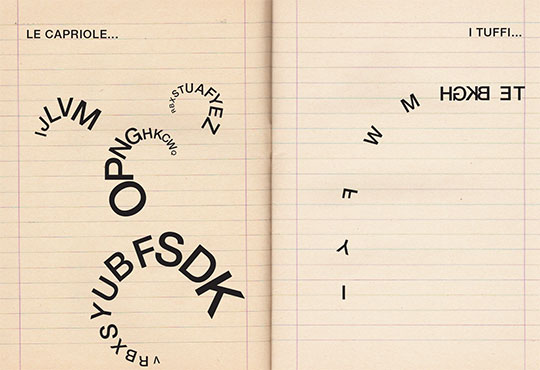 LE CAPRIOLE...
IJLVM
RBXSTUAFYEZ
OPNGHKCWO
VRBXSYUBFSDK
I TUFFI...
TE BKGH
M
W
F
Y
I